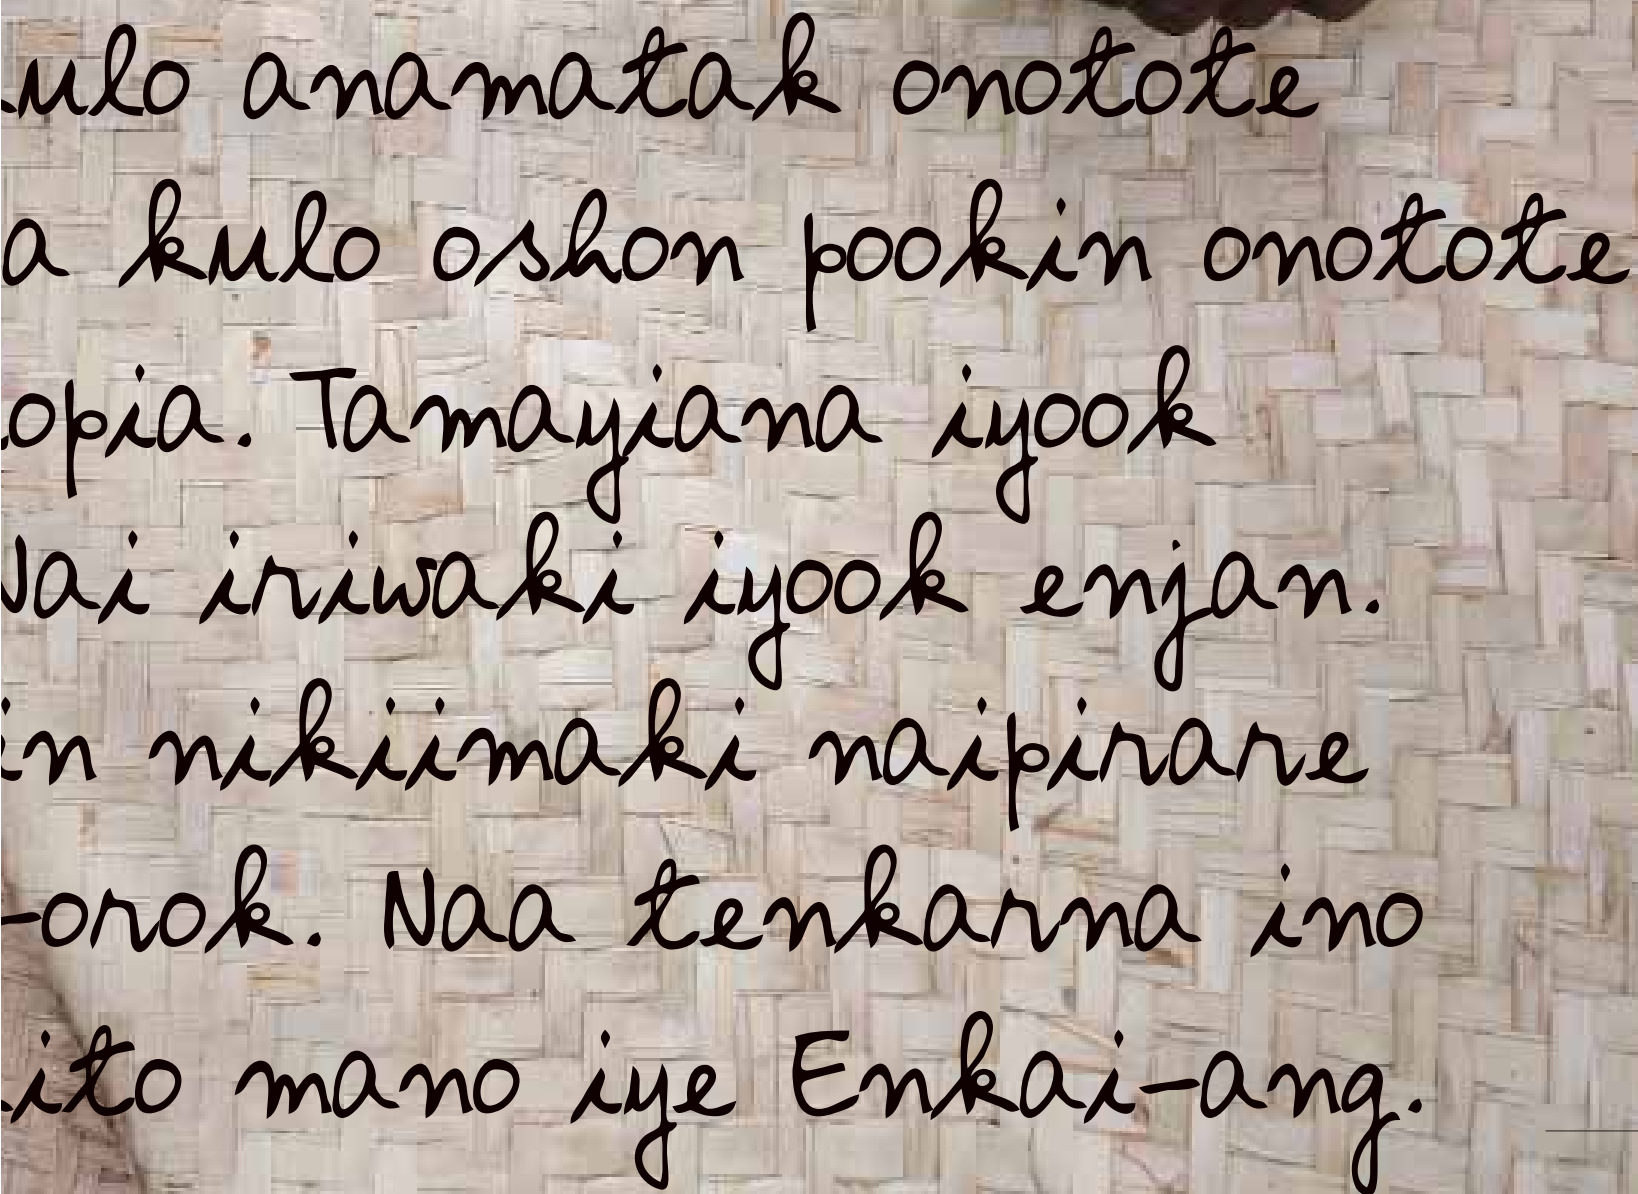 kulo anamatak onotote
a kulo oshon pookin onotote
opia. Tamayiana iyook
Nai iriwaki iyook enjan.
in nikiimaki naipirare
-orok. Naa tenkarna ino
ito mano iye Enkai-ang.